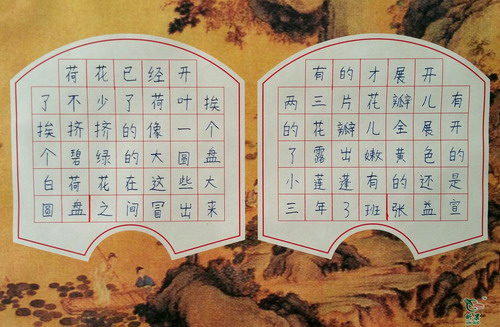 荷花已经开
了不少了荷叶挨
挨挤挤的像一个
个碧绿的大圆盘
白荷花在这些大
圆盘之间冒出来
有的才展开
两三片花瓣儿有
的花瓣儿全展开
了露出嫩黄色的
小莲蓬有的还是
三年3班张益宣